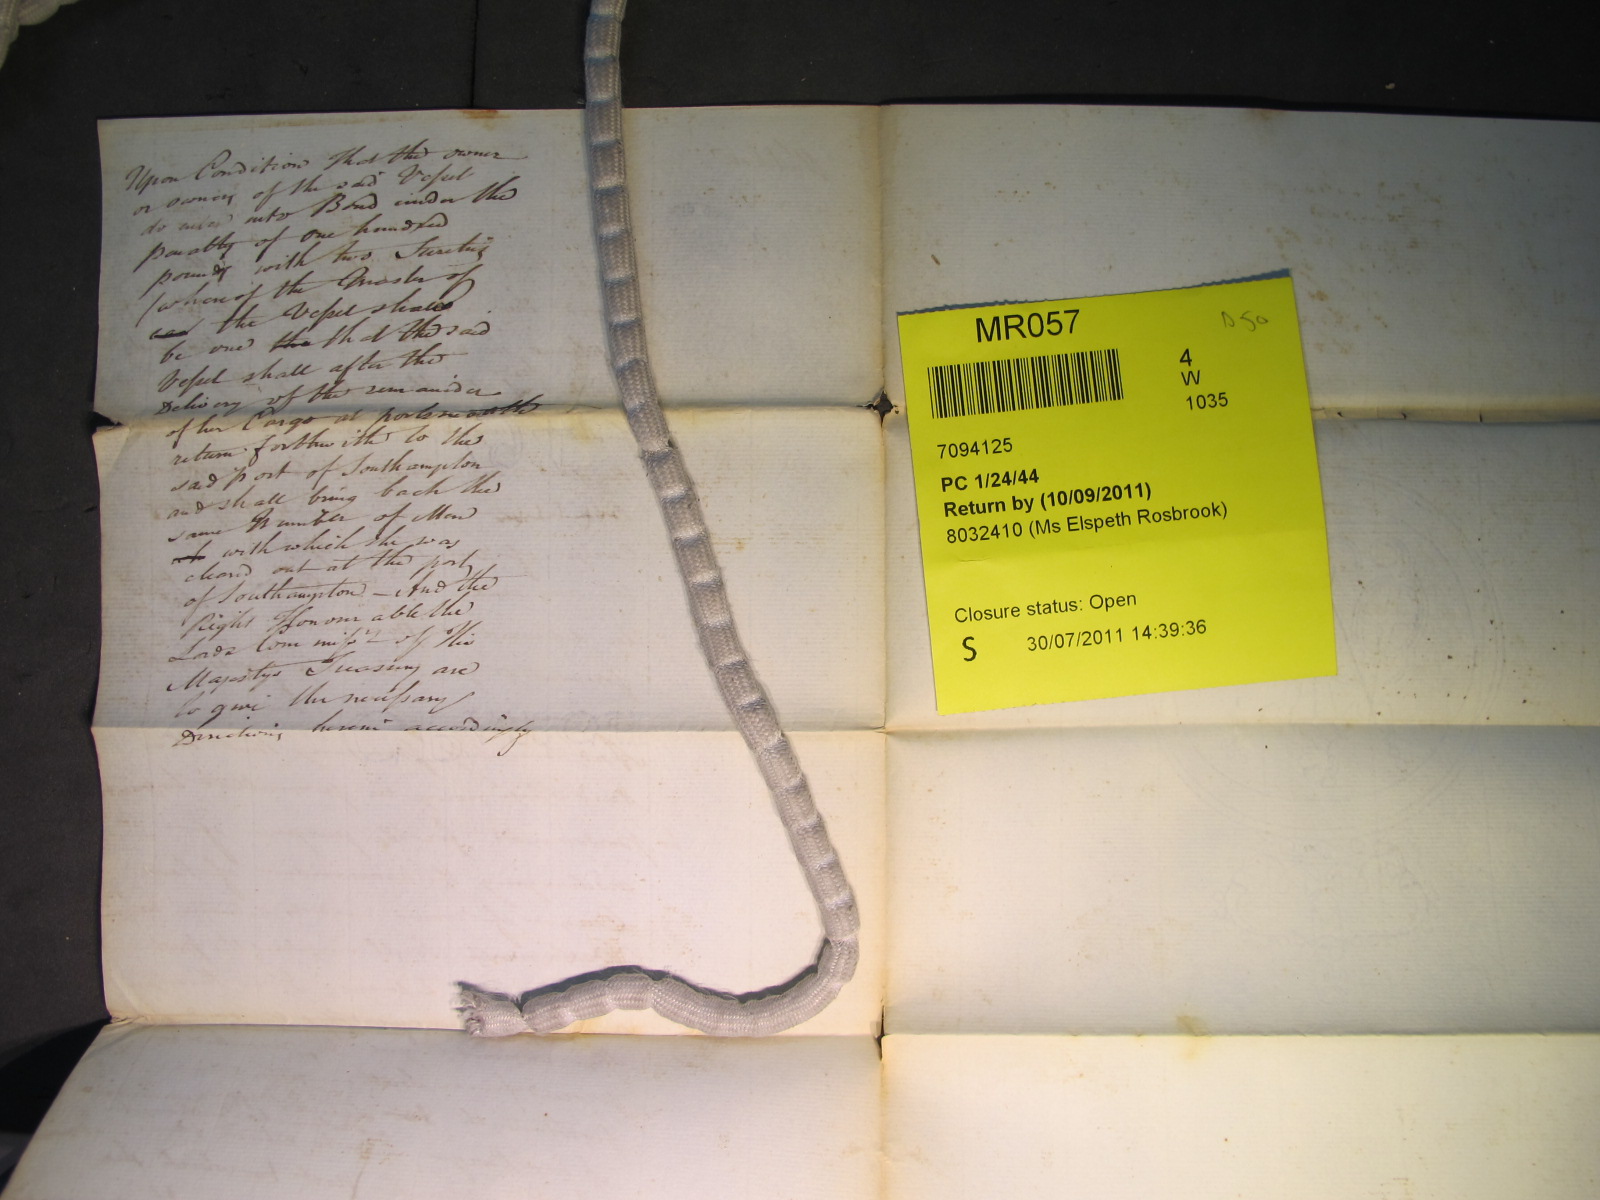 Upon Condition that the owner
or owners of the said Vessel
do enter into Bond under the
penalty of one hundred
pounds with two Sureties
(whereof the Master of
the Vessel shall
be one that the said
Vessel shall after the
Delivery of the remainder
of her Cargo at portsmouth
return forthwith to the
said Port of Southampton
and shall bring back the
same Number of Men
with which she was
cleared out at the port
of Southampton – And the
Right Honourable the
Lords Commissrs of His
Majestys Treasury are
to give the necessary
Directions herein accordingly
MR057
D 50
4
W
1035
7094125
PC 1/24/44
Return by (10/09/2011)
8032410 (Ms Elspeth Rosbrook)
Closure status: Open
S 30/07/2011 14:39:36